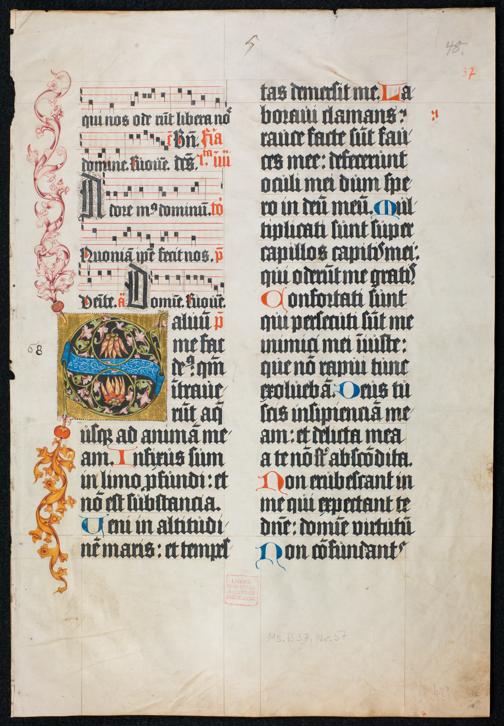 5
48.
37
qui nos ode rūt libera no
domine kuoue. dcs.
dore mꝰ dominū.
Quoniā ipē fecit nos. p
Venite. ā Domīe kuoue.
68
Saluū p
me fac
deꝰ: qm̄
ītraue
rūt aq̄
usqʒ ad animā me
am. Infixus sum
in limo pfūdi: et
nō est substancia.
Veni in altitudi
nē maris: et tempes
tas demersit me. La
boraui clamans:
rauce facte sūt fau
ces mee: defecerunt
oculi mei dum spe
ro in deū meū. Mul
tiplicati sunt super
capillos capitis mei:
qui oderūt me gratis
Confortati sunt
qui persecuti sūt me
inimici mei iniuste:
que nō rapui tunc
exoluebā. Deus tu
scis insipienciā me
am: et delicta mea
a te nō sūt abscōdita.
Non erubescant in
me qui expectant te
dn̄e: domīe virtutū
Non cōfundant
Ms. B 37, Nr. 57